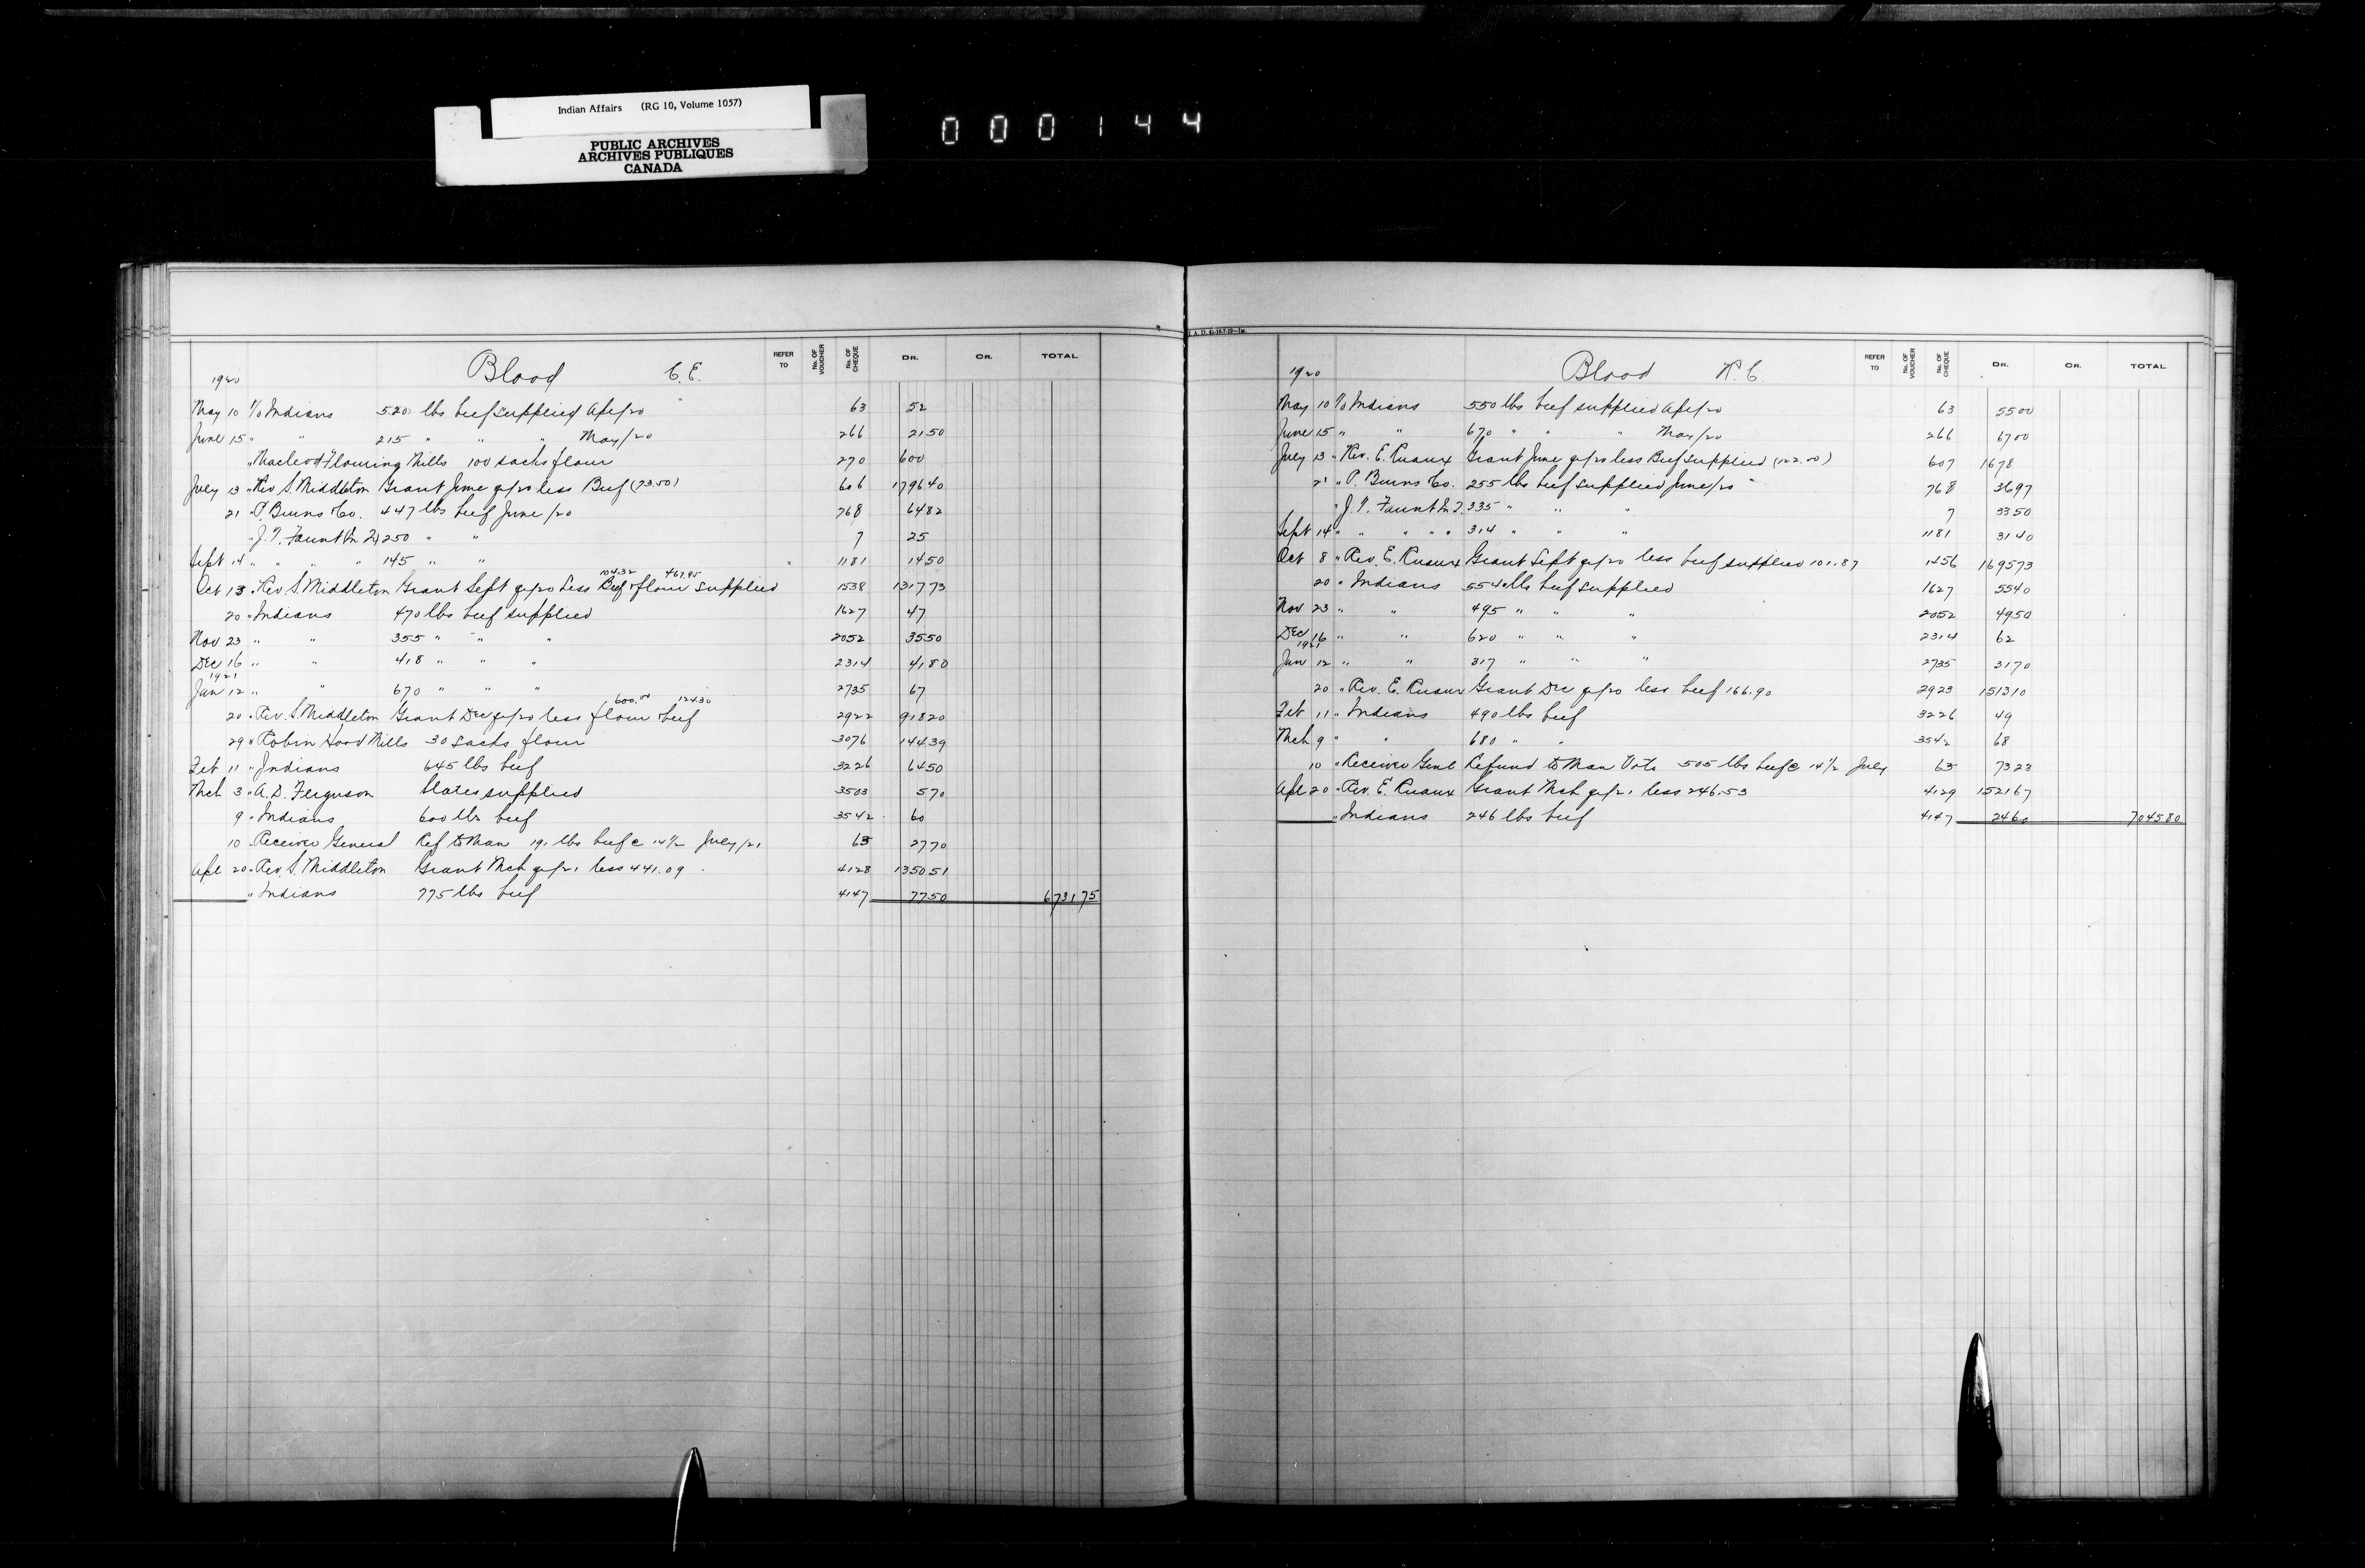 Indian Affairs (RG 10, Volume 1057)
PUBLIC ARCHIVES
ARCHIVES PUBLIQUES
CANADA
000144
Blood C.E. REFER TO No. OF VOUCHER No. OF CHEQUE DR. CR. TOTAL
1920
May 10 T/o Indians 520 lbs beef supplied Apl/20 63 52
June 15 " " 215 " " " May/20 266 21 50
" Macleod Flouring Mills 100 sacks flour 270 600
July 13 " Rev S. Middleton Grant June qr/20 less Beef (73.50) 606 1796 40
21 " P. Burns & Co. 447 lbs beef June/20 768 64 82
" J.T. Faunt 250 " " 7 25
Sept 14 " " " " 145 " " 1181 14 50
104.32 467.95
Oct 13 " Rev S. Middleton Grant Sept qr/20 Less Beef & flour supplied 1538 1317 73
20 " Indians 470 lbs beef supplied 1627 47
Nov 23 " " 355 " " " 2052 35 50
Dec 16 " " 418 " " " 2314 41 80
1921
Jan 12 " " 670 " " " 2735 67
600.00 124.30
20 " Rev. S. Middleton Grant Dec qr/20 less flour & beef 2922 918 20
29 " Robin Hood Mills 30 sacks flour 3076 144 39
Feb 11 " Indians 645 lbs beef 3226 64 50
Mch 3 " A.D. Ferguson Slates supplied 3503 5 70
9 " Indians 600 lbs beef 3542 60
10 " Receiver General Ref to Man 191 lbs beef @ 14 1/2 July/21 63 27 70
Apl 20 " Rev. S. Middleton Grant Mch qr/21 less 441.09 4128 1350 51
" Indians 775 lbs beef 4147 77 50 6731 75
Blood R.C. REFER TO No. OF VOUCHER No. OF CHEQUE DR. CR. TOTAL
1920
May 10 T/o Indians 550 lbs beef supplied Apl/20 63 55 00
June 15 " " 670 " " " May/20 266 67 00
July 13 " Rev. E. Ruaux Grant June qr/20 less Beef supplied (122.00) 607 1678
21 " P. Burns & Co. 255 lbs beef supplied June/20 768 36 97
" J.T. Faunt 335 " " " 7 33 50
Sept 14 " " " " 314 " " " 1181 31 40
Oct 8 " Rev. E. Ruaux Grant Sept qr/20 less beef supplied 101.87 1456 1695 73
20 " Indians 554 lbs beef supplied 1627 55 40
Nov 23 " " 495 " " " 2052 49 50
Dec 16 " " 620 " " " 2314 62
1921
Jan 12 " " 317 " " " 2735 31 70
20 " Rev. E. Ruaux Grant Dec qr/20 less beef 166.90 2923 1513 10
Feb 11 " Indians 490 lbs beef 3226 49
Mch 9 " " 680 " " 3542 68
10 " Receiver Genl Refund to Man Vote 505 lbs beef @ 14 1/2 July 63 73 23
Apl 20 " Rev. E. Ruaux Grant Mch qr/21 less 246.53 4129 1521 67
" Indians 246 lbs beef 4147 24 60 7045 80